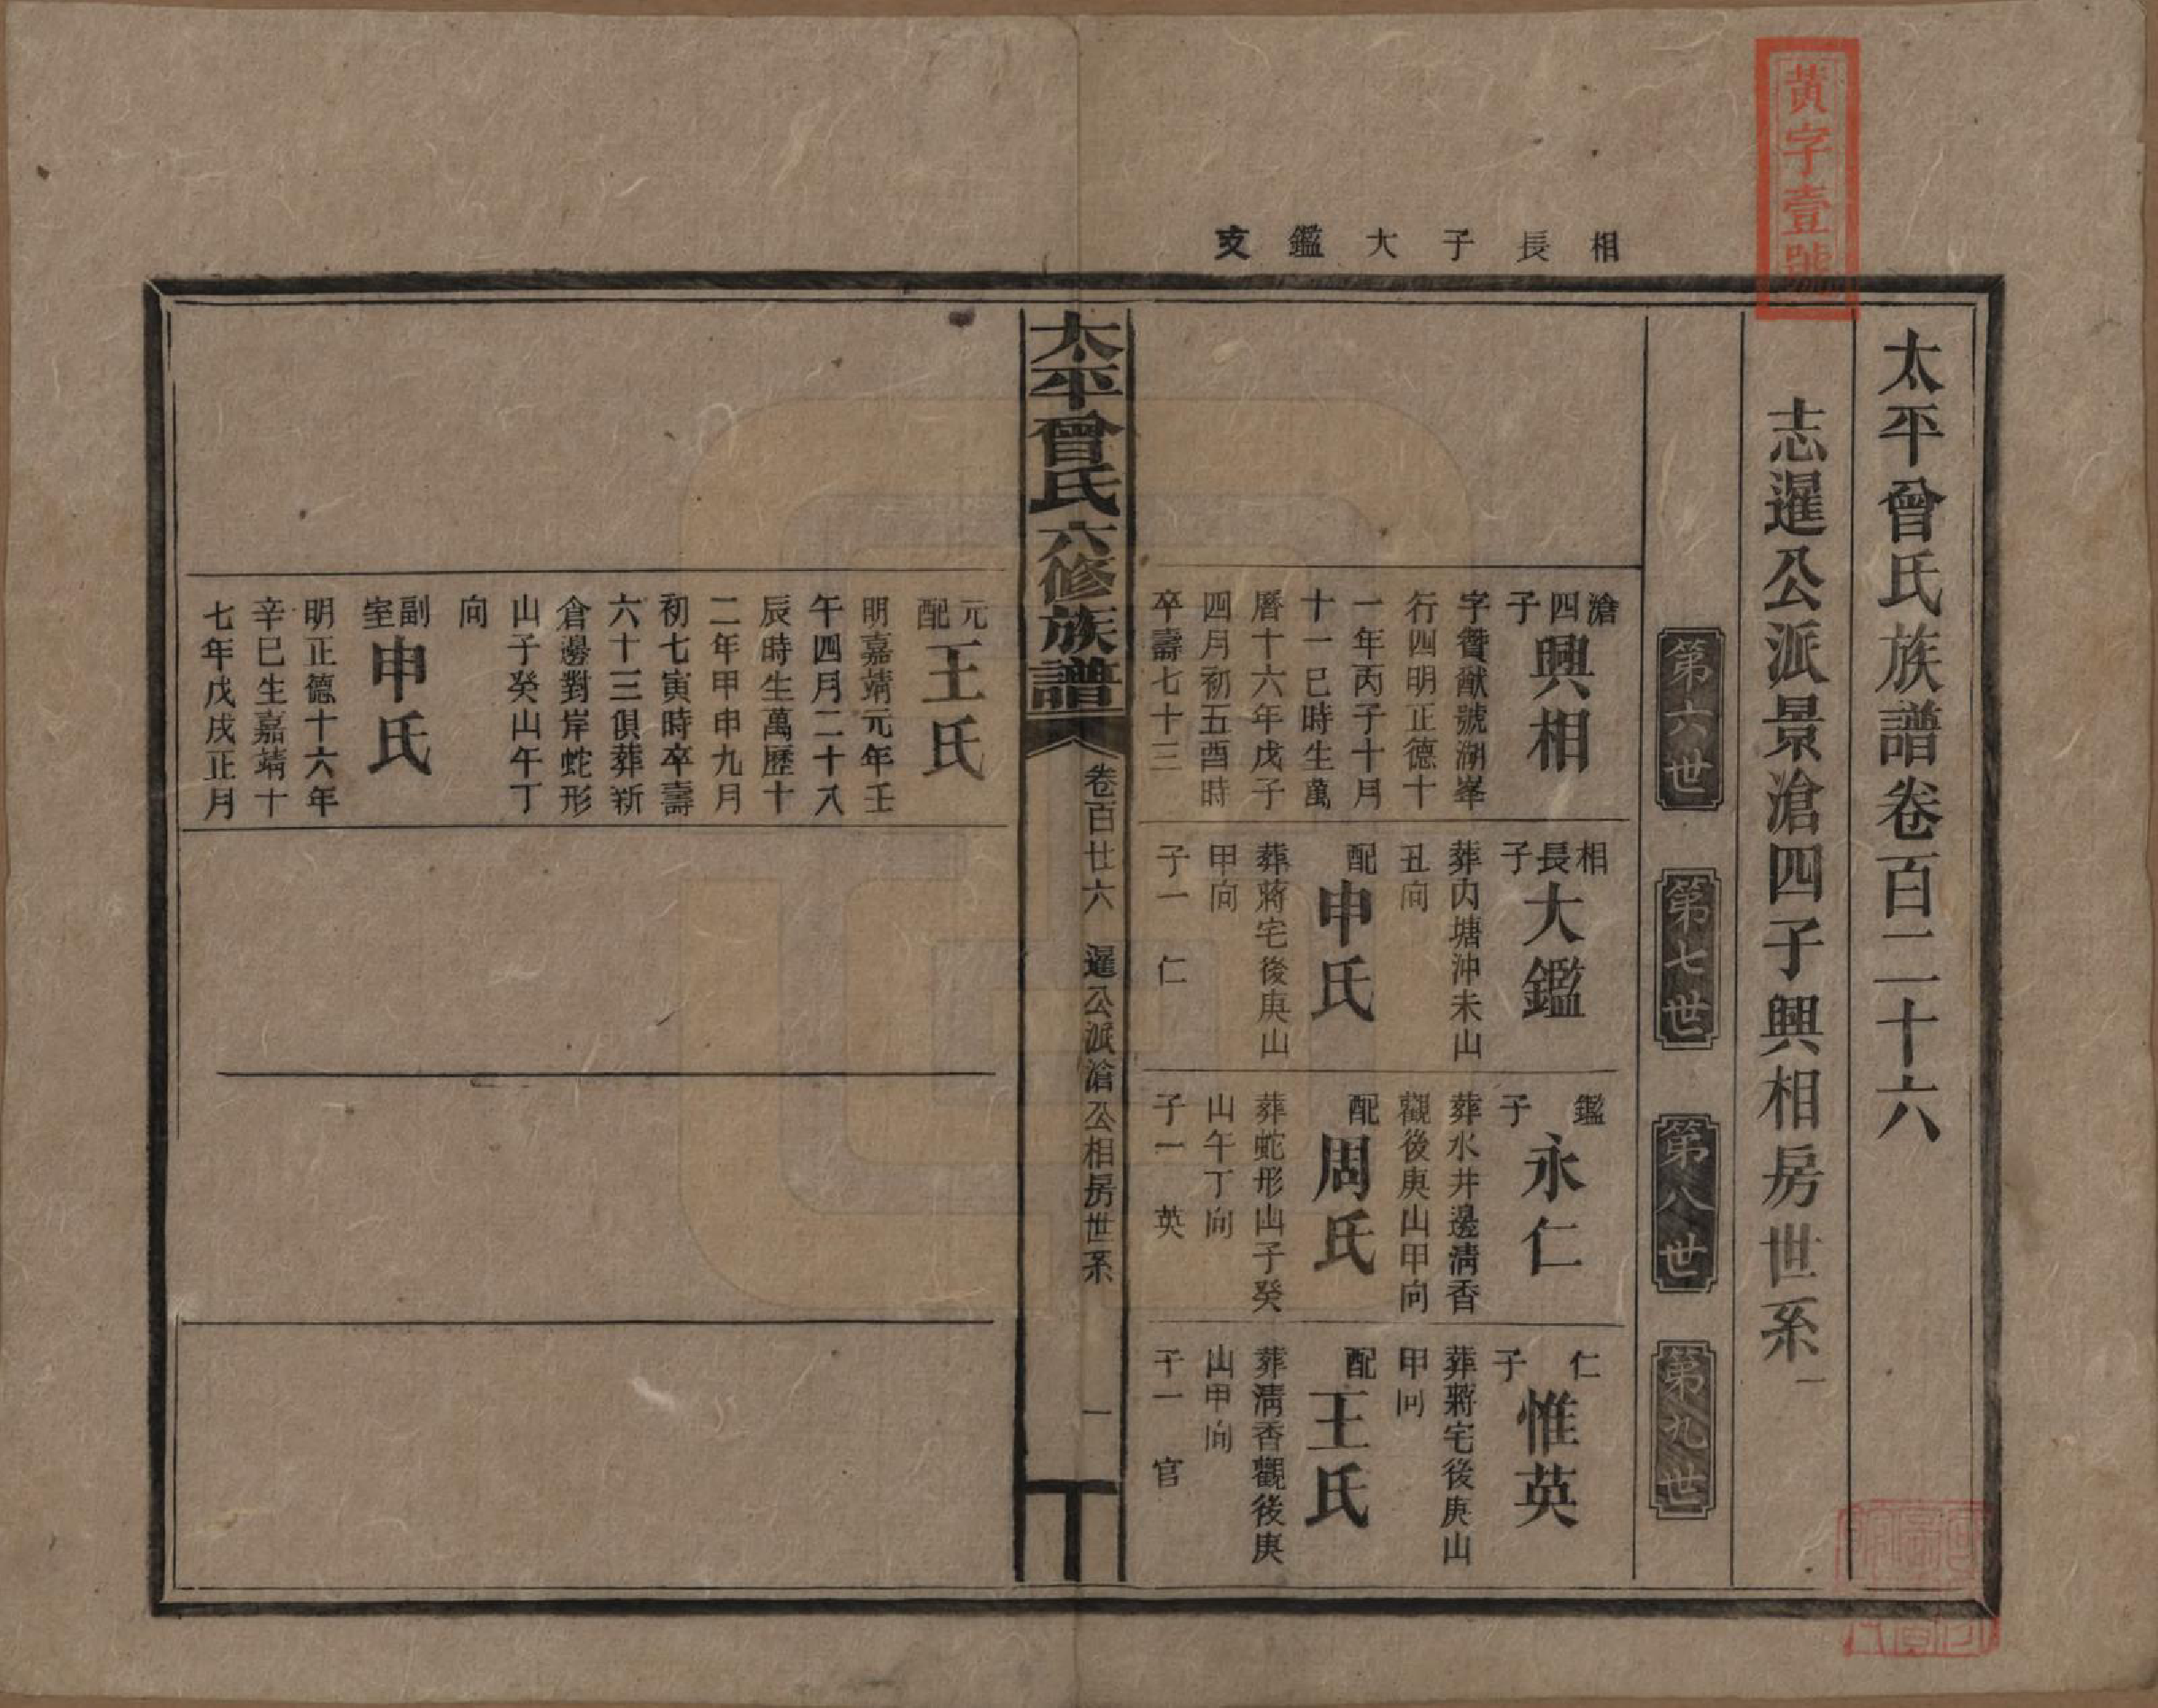 黃字壹號
相長子大鑑支
太平曾氏族譜卷百二十六
志暹公派景滄四子興相房世系一
第六世
第七世
第八世
第九世
滄四子
興相
字贊猷號湖峯
行四明正德十
一年丙子十月
十一巳時生萬
曆十六年戊子
四月初五酉時
卒壽七十三
相長子
大鑑
葬內塘沖未山
丑向
配
申氏
葬蔣宅後庚山
甲向
子一 仁
鑑子
永仁
葬水井邊清香
觀後庚山甲向
配
周氏
葬蛇形山子癸
山午丁向
子一 英
仁子
惟英
葬蔣宅後庚山
甲向
配
王氏
葬清香觀後庚
山甲向
子一 官
太平曾氏六修族譜
卷百廿六
暹公派滄公相房世系
一
元配
王氏
明嘉靖元年壬
午四月二十八
辰時生萬歷十
二年甲申九月
初七寅時卒壽
六十三俱葬新
倉邊對岸蛇形
山子癸山午丁
向
副室
申氏
明正德十六年
辛巳生嘉靖十
七年戊戌正月